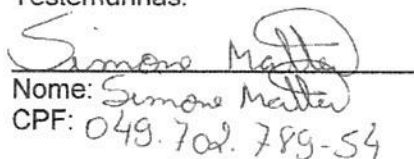 Testemunhas:
Simone Matter
Nome: Simone Matter
CPF: 049.702.789-54